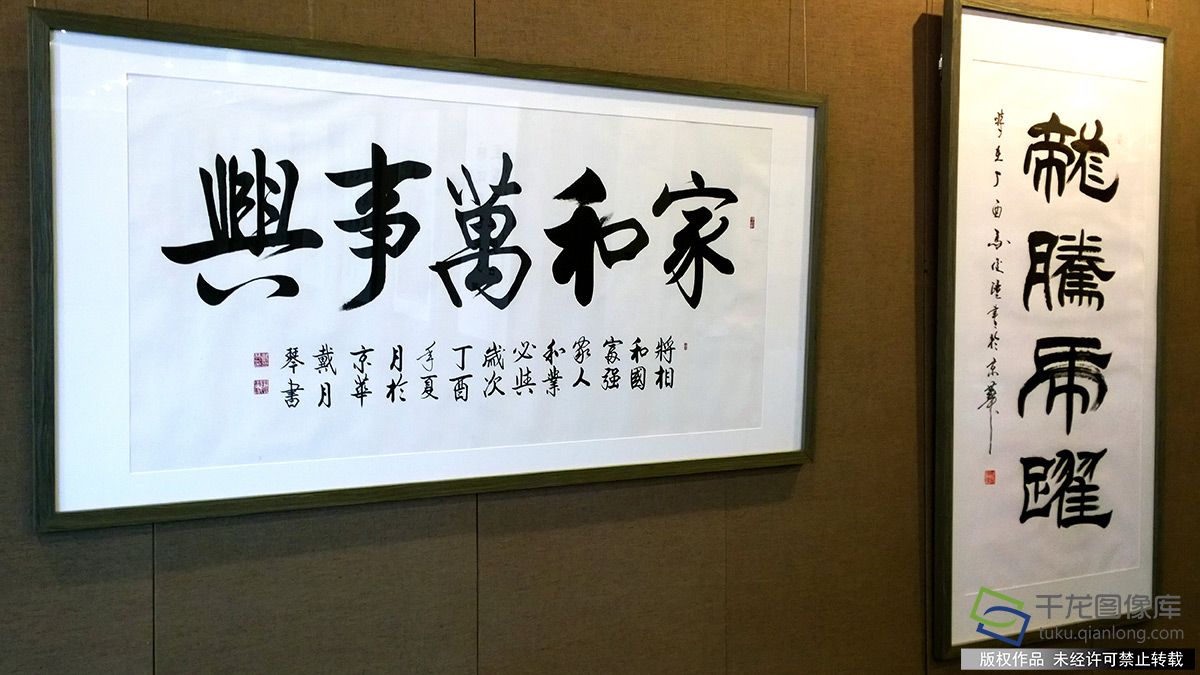 家和萬事興
將相
和國
富强
家人
和業
必興
歲次
丁酉
年夏
月於
京華
戴月
琴书
龍騰虎躍
丁酉
書於京華
千龙图像库
tuku.qianlong.com
版权作品 未经许可禁止转载